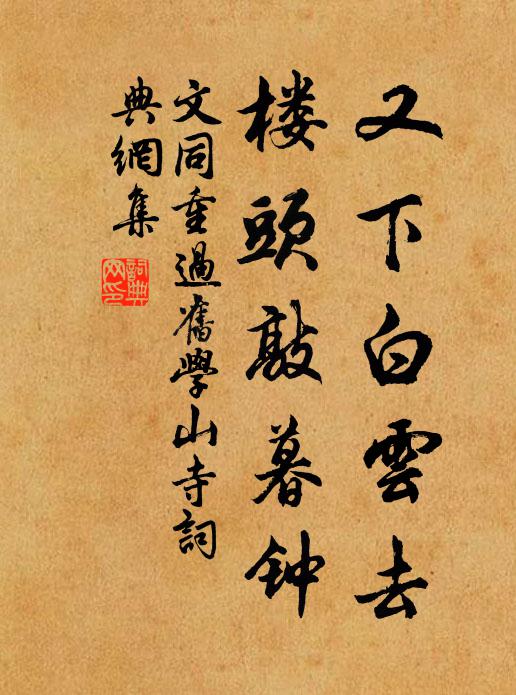 又下白雲去
楼頭敲暮钟
文同重過舊學山寺詞
典網集
詞典網印